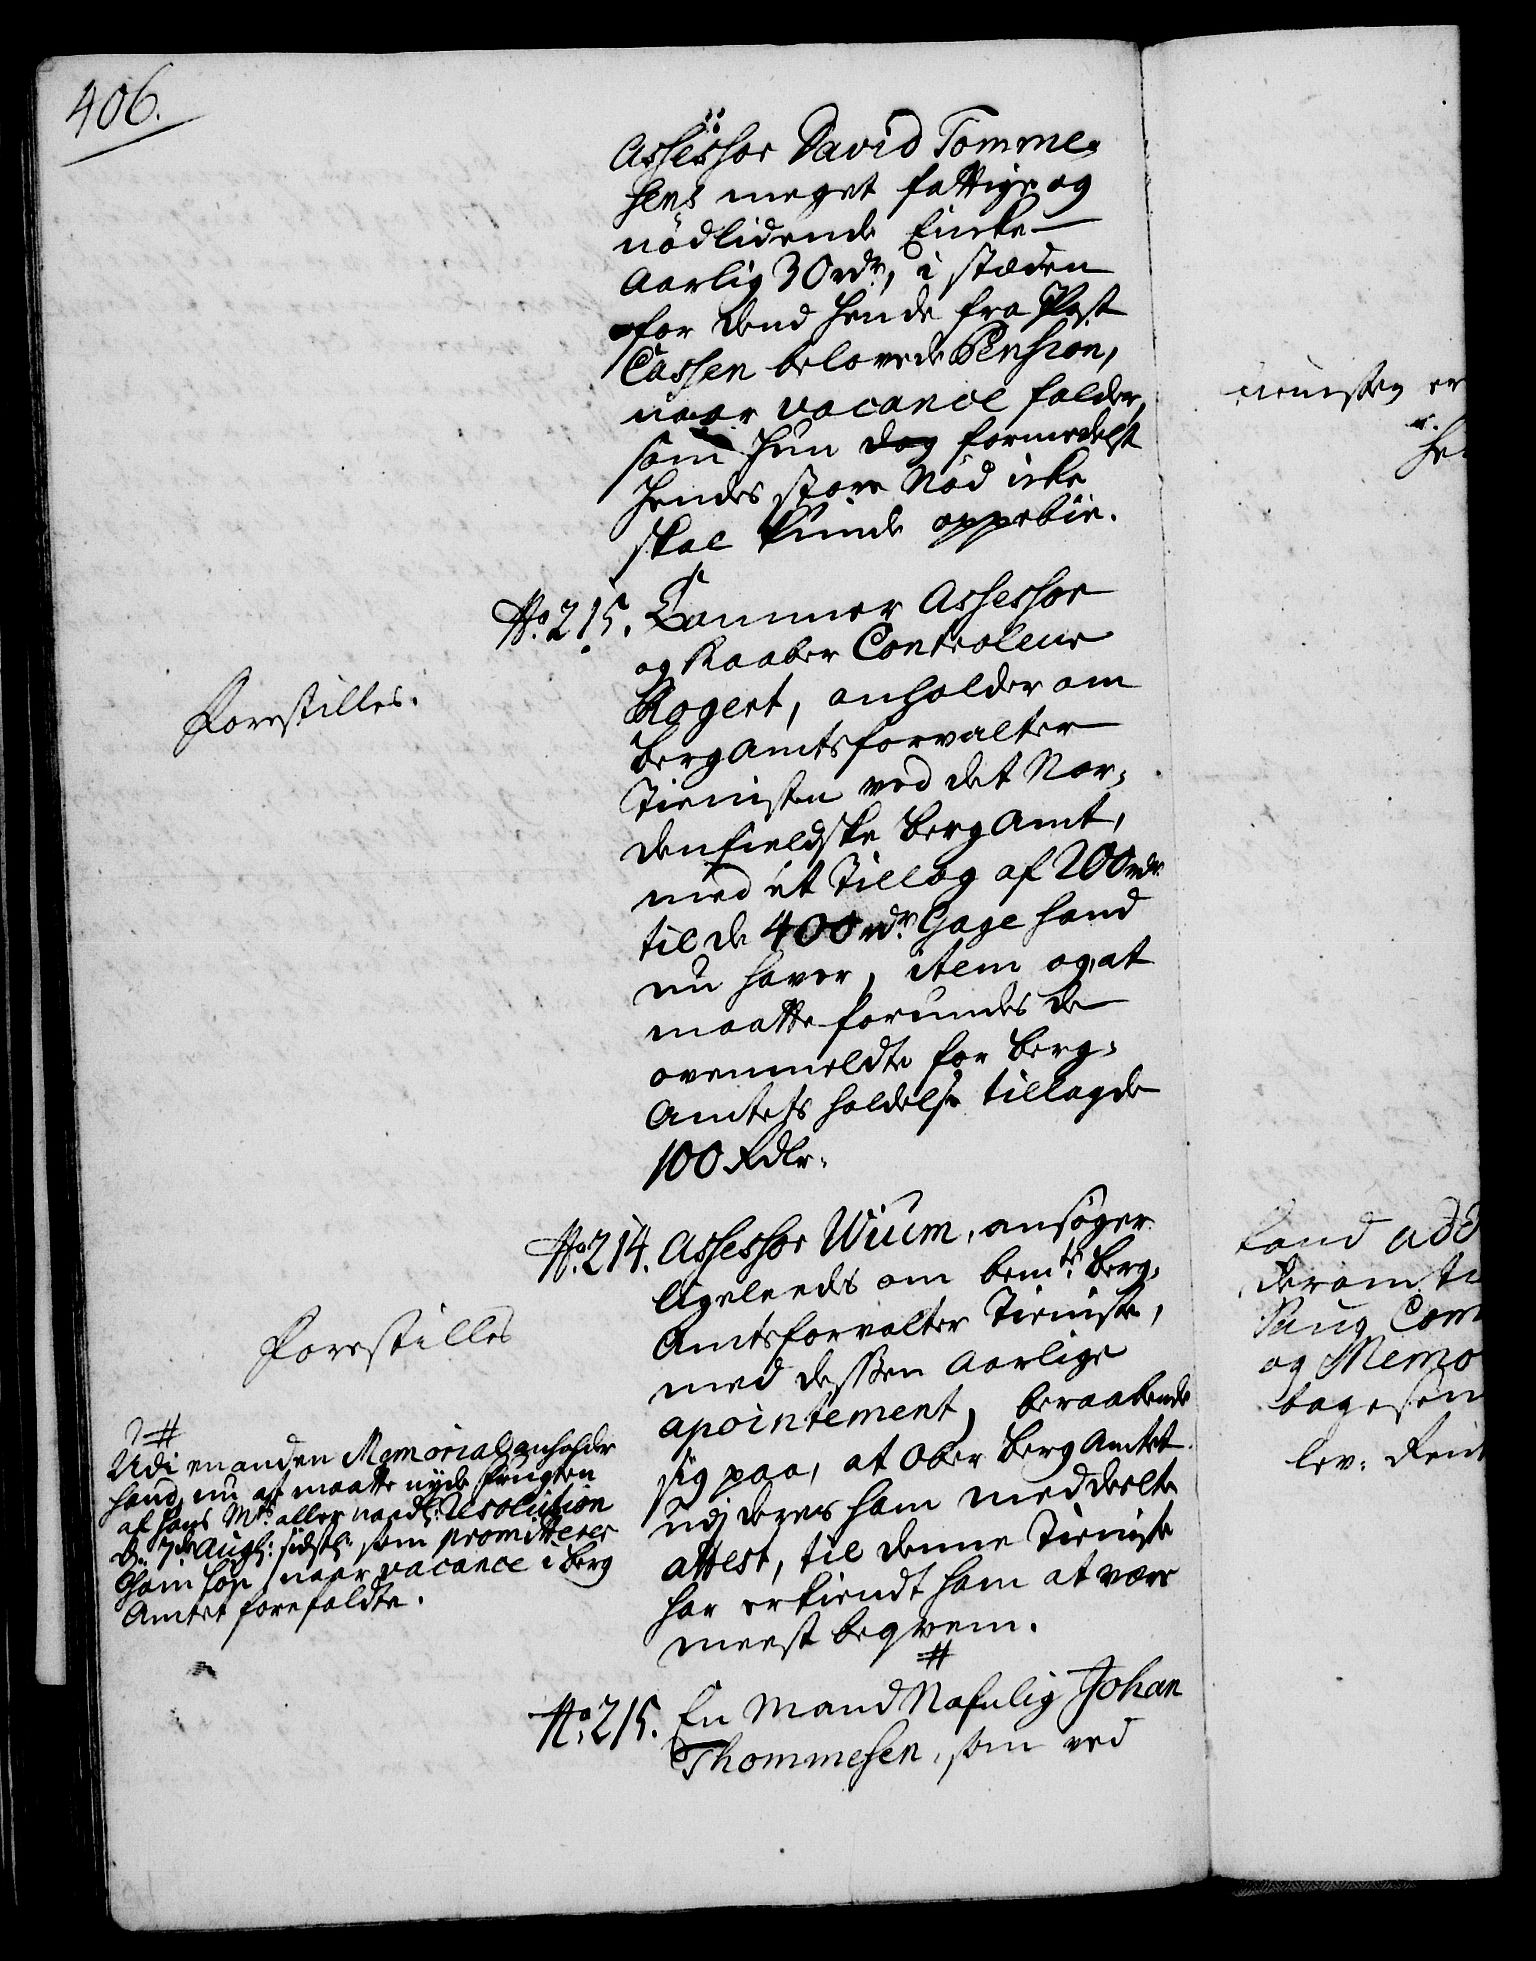 406.
Assessor David Tomme-
sens meget fattige og
nödlidende Encke
Aarlig 30 rdr, i stæden
for dend hende fra Post
Cassen belovede Pension,
naar vacance falder,
som hun dog formedelst
hendes store Nöd icke
skal kunde oppebie.
No. 215. Cammer Assessor
og Kaaber Controleur
Rogert, anholder om
BergAmtsforvalter
Tienisten ved det Nor-
denfieldske BergAmt,
med et Tillæg af 200 rdr
til de 400 rdr Gage hand
nu haver, item og, at
maatte forundes de
ovenmeldte for Berg-
Amtets holdelse tillagde
100 Rdlr.
Forestilles.
No. 214. Assessor Wium, ansöger
ligeleeds om bemte Berg-
Amtsforvalter Tieniste,
med dessen Aarlige
apointement, beraabende
sig paa, at Ober BergAmtet
udj deres ham meddeelte
attest, til denne Tieniste
har erkiendt ham at være
meest beqvem.
#
Forestilles
#
Udi en anden Memorial anholder
hand nu at maatte nyde frugten
af hans Mts allernaadl: Resolution
d: 7de Augl: sidstl: som promitterer
ham hos naar vacance i Berg
Amtet forefaldte.
No. 215. En Mand Nafnlig Johan
Thommesen, som ved
tienisten er
he
land add
derom ti
Paug Com
og Memo
bagesen
lev: Rent